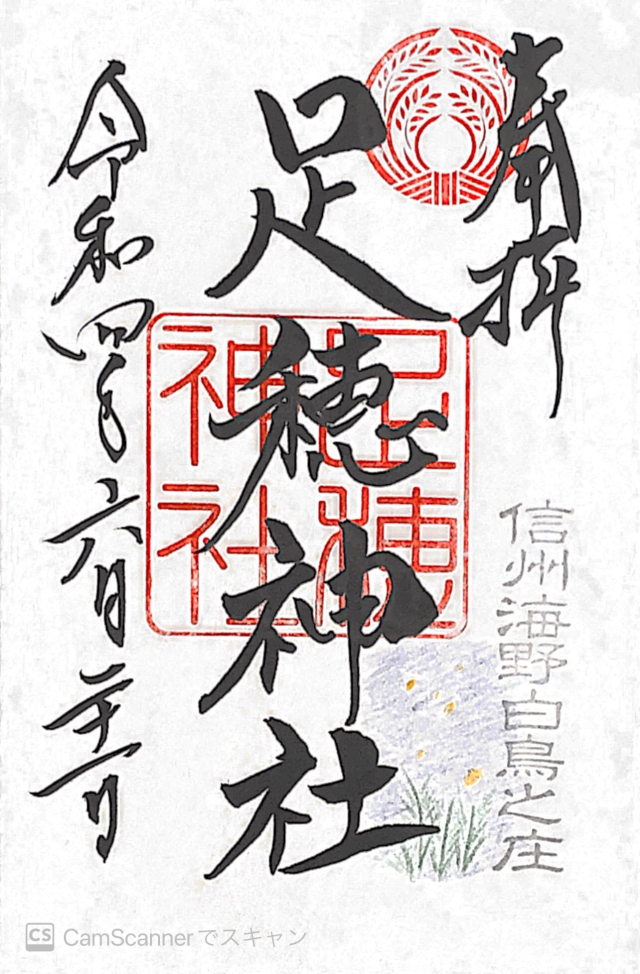 奉拝
信州海野白鳥之庄
足穂神社
足穂
神社
令和四年六月二十一日
CS CamScannerでスキャン